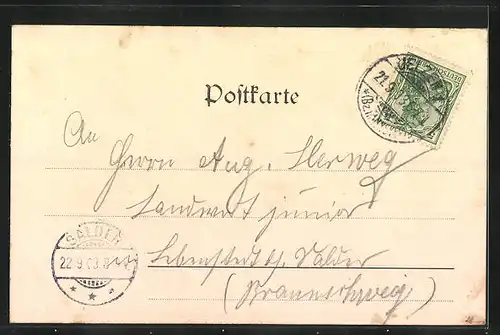 Postkarte
An
Herrn Aug. Herweg
Landwirt junior
Lebenstedt b/ Salder
(Braunschweig)
SALDER
22.9.03.8
UETZE
21.9